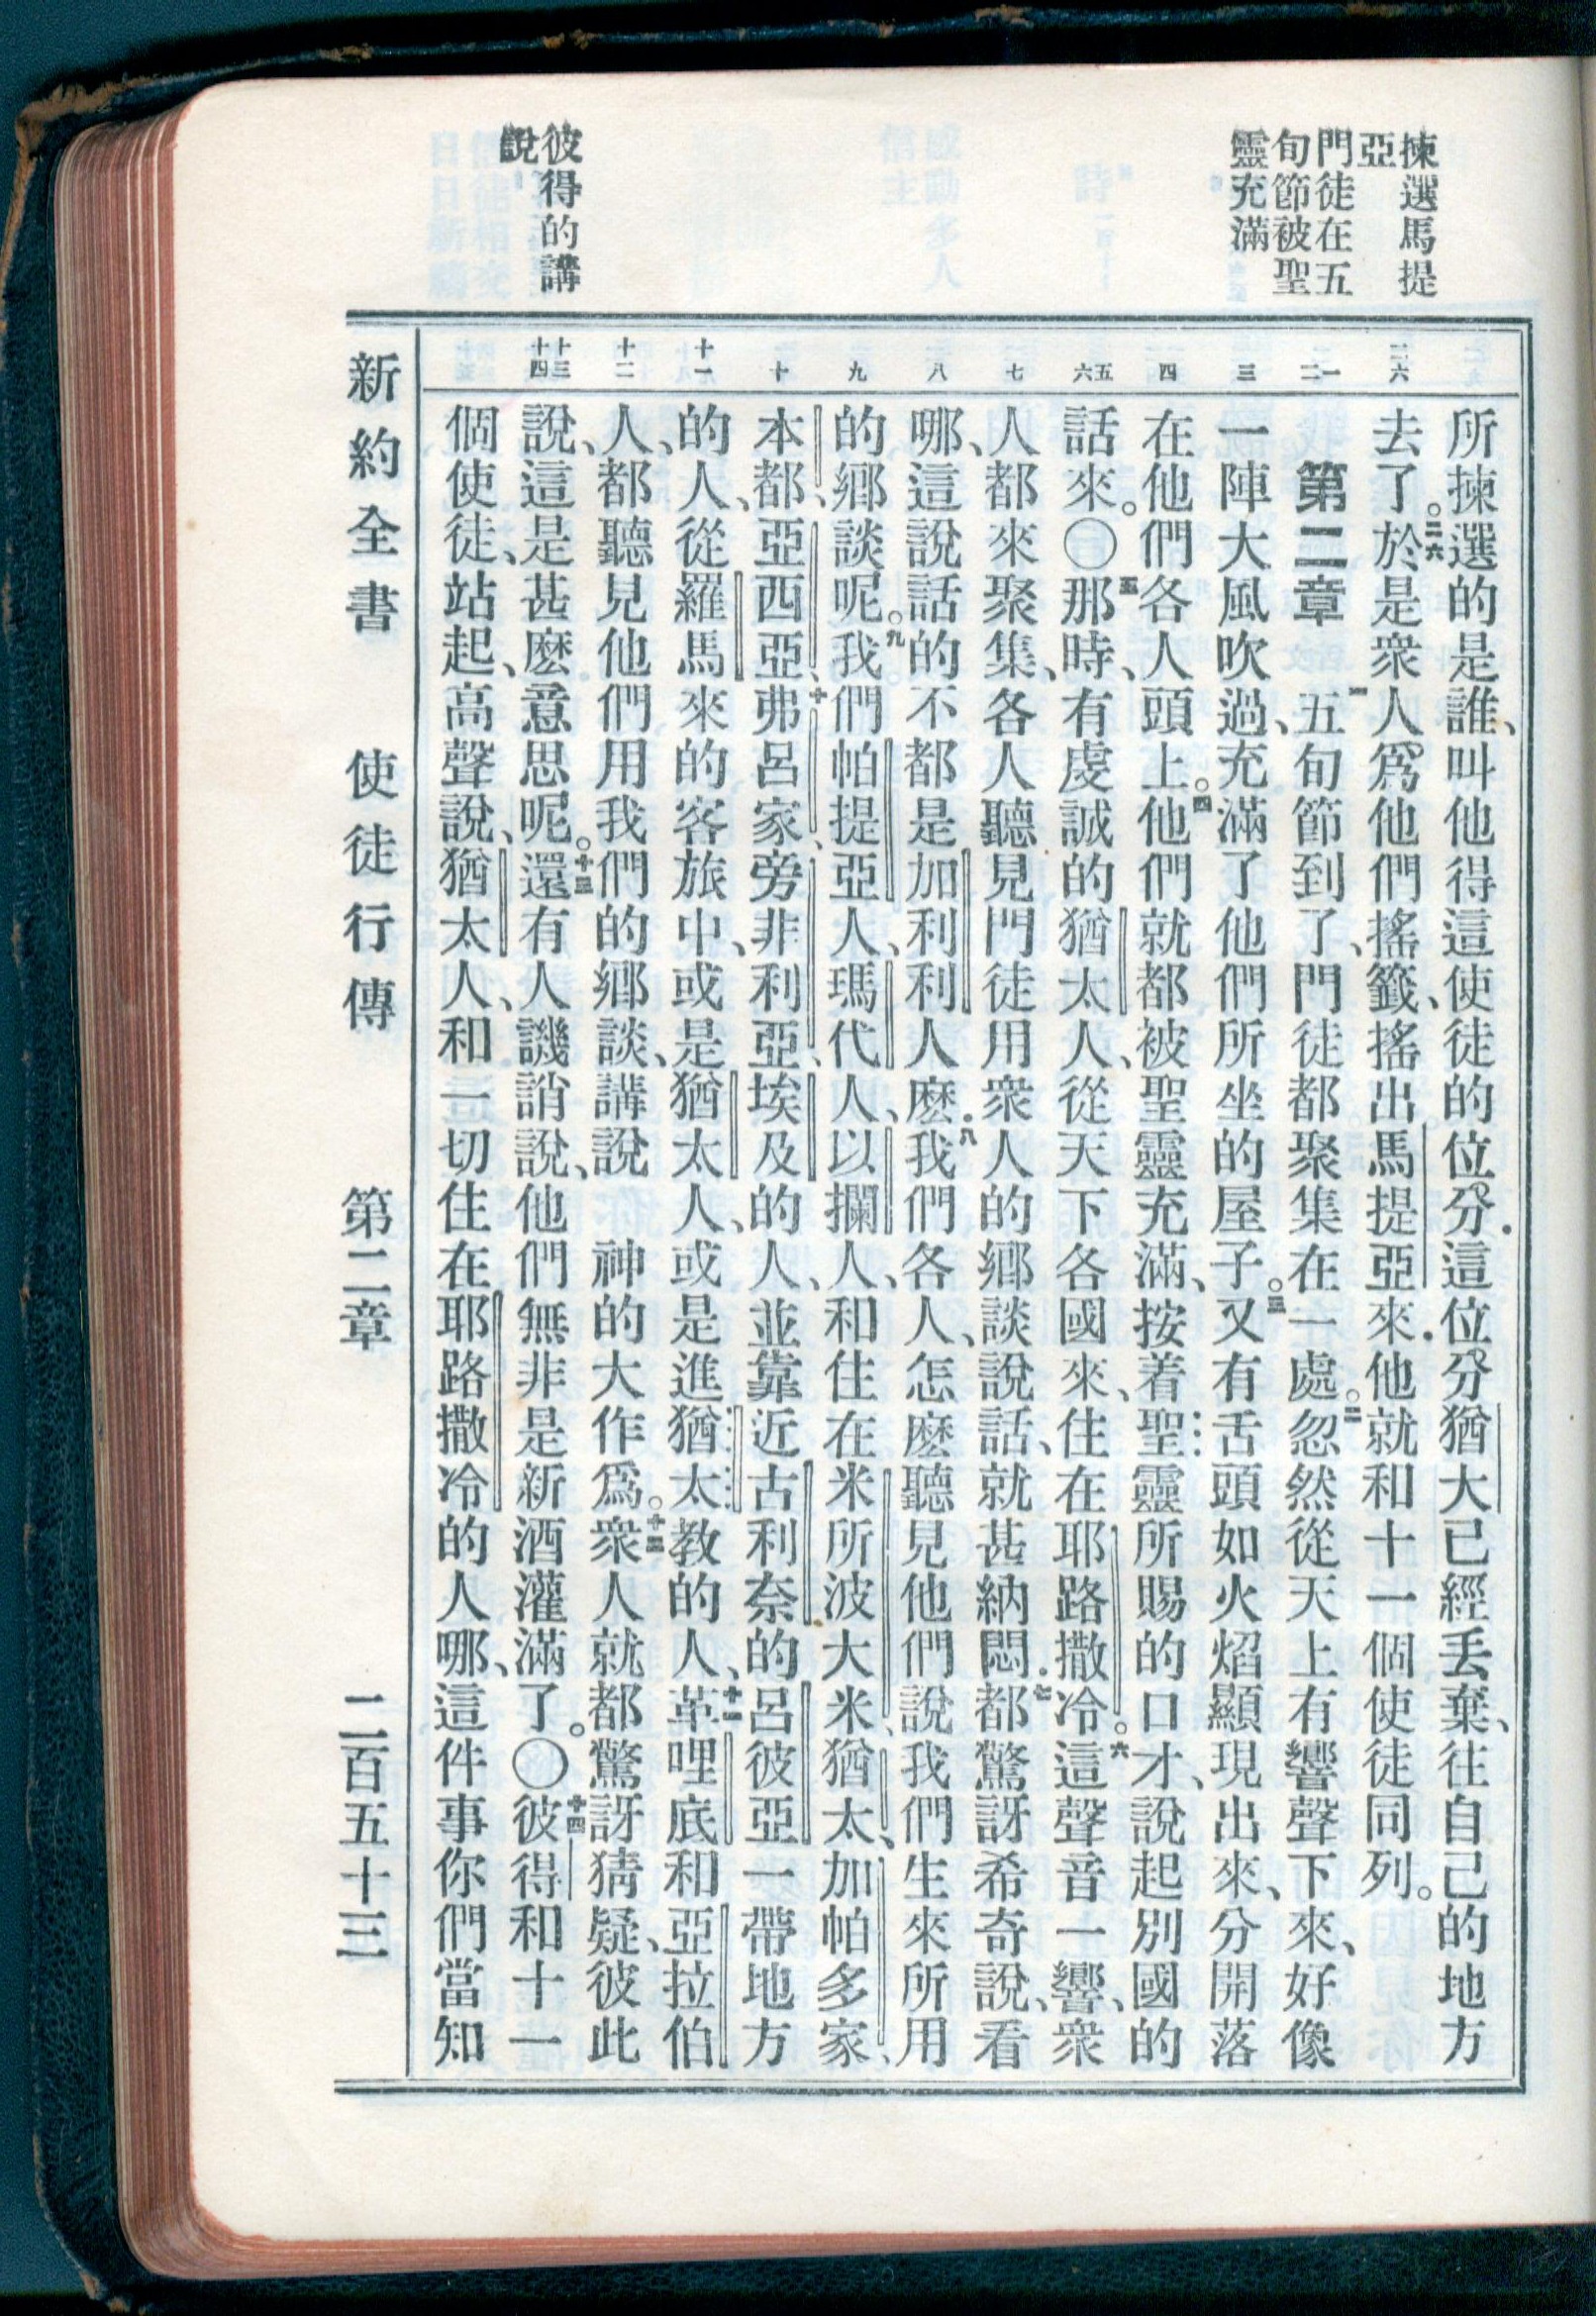 揀選馬提
亞
門徒在五
旬節被聖
靈充滿
彼得的講
說
二六
一
二
三
四
五
六
七
八
九
十
十一
十二
十三
十四
所揀選的是誰、叫他得這使徒的位分．這位分猶大已經丟棄、往自己的地方
去了。二六於是衆人爲他們搖籤、搖出馬提亞來．他就和十一個使徒同列。
第二章 一五旬節到了、門徒都聚集在一處。二忽然從天上有響聲下來、好像
一陣大風吹過、充滿了他們所坐的屋子。三又有舌頭如火焰顯現出來、分開落
在他們各人頭上。四他們就都被聖靈充滿、按着聖靈所賜的口才、說起別國的
話來。〇五那時、有虔誠的猶太人、從天下各國來、住在耶路撒冷。六這聲音一響、衆
人都來聚集、各人聽見門徒用衆人的鄉談說話、就甚納悶．七都驚訝希奇說、看
哪、這說話的不都是加利利人麽．八我們各人、怎麽聽見他們說我們生來所用
的鄉談呢。九我們帕提亞人、瑪代人、以攔人、和住在米所波大米、猶太、加帕多家、
本都、亞西亞、十弗呂家、旁非利亞、埃及的人、並靠近古利奈的呂彼亞一帶地方
的人、從羅馬來的客旅中、或是猶太人、或是進猶太教的人、十一革哩底和亞拉伯
人、都聽見他們用我們的鄉談、講說 神的大作爲。十二衆人就都驚訝猜疑、彼此
說、這是甚麽意思呢。十三還有人譏誚說、他們無非是新酒灌滿了。〇十四彼得和十一
個使徒、站起、高聲說、猶太人、和一切住在耶路撒冷的人哪、這件事你們當知
新約全書 使徒行傳 第二章 二百五十三